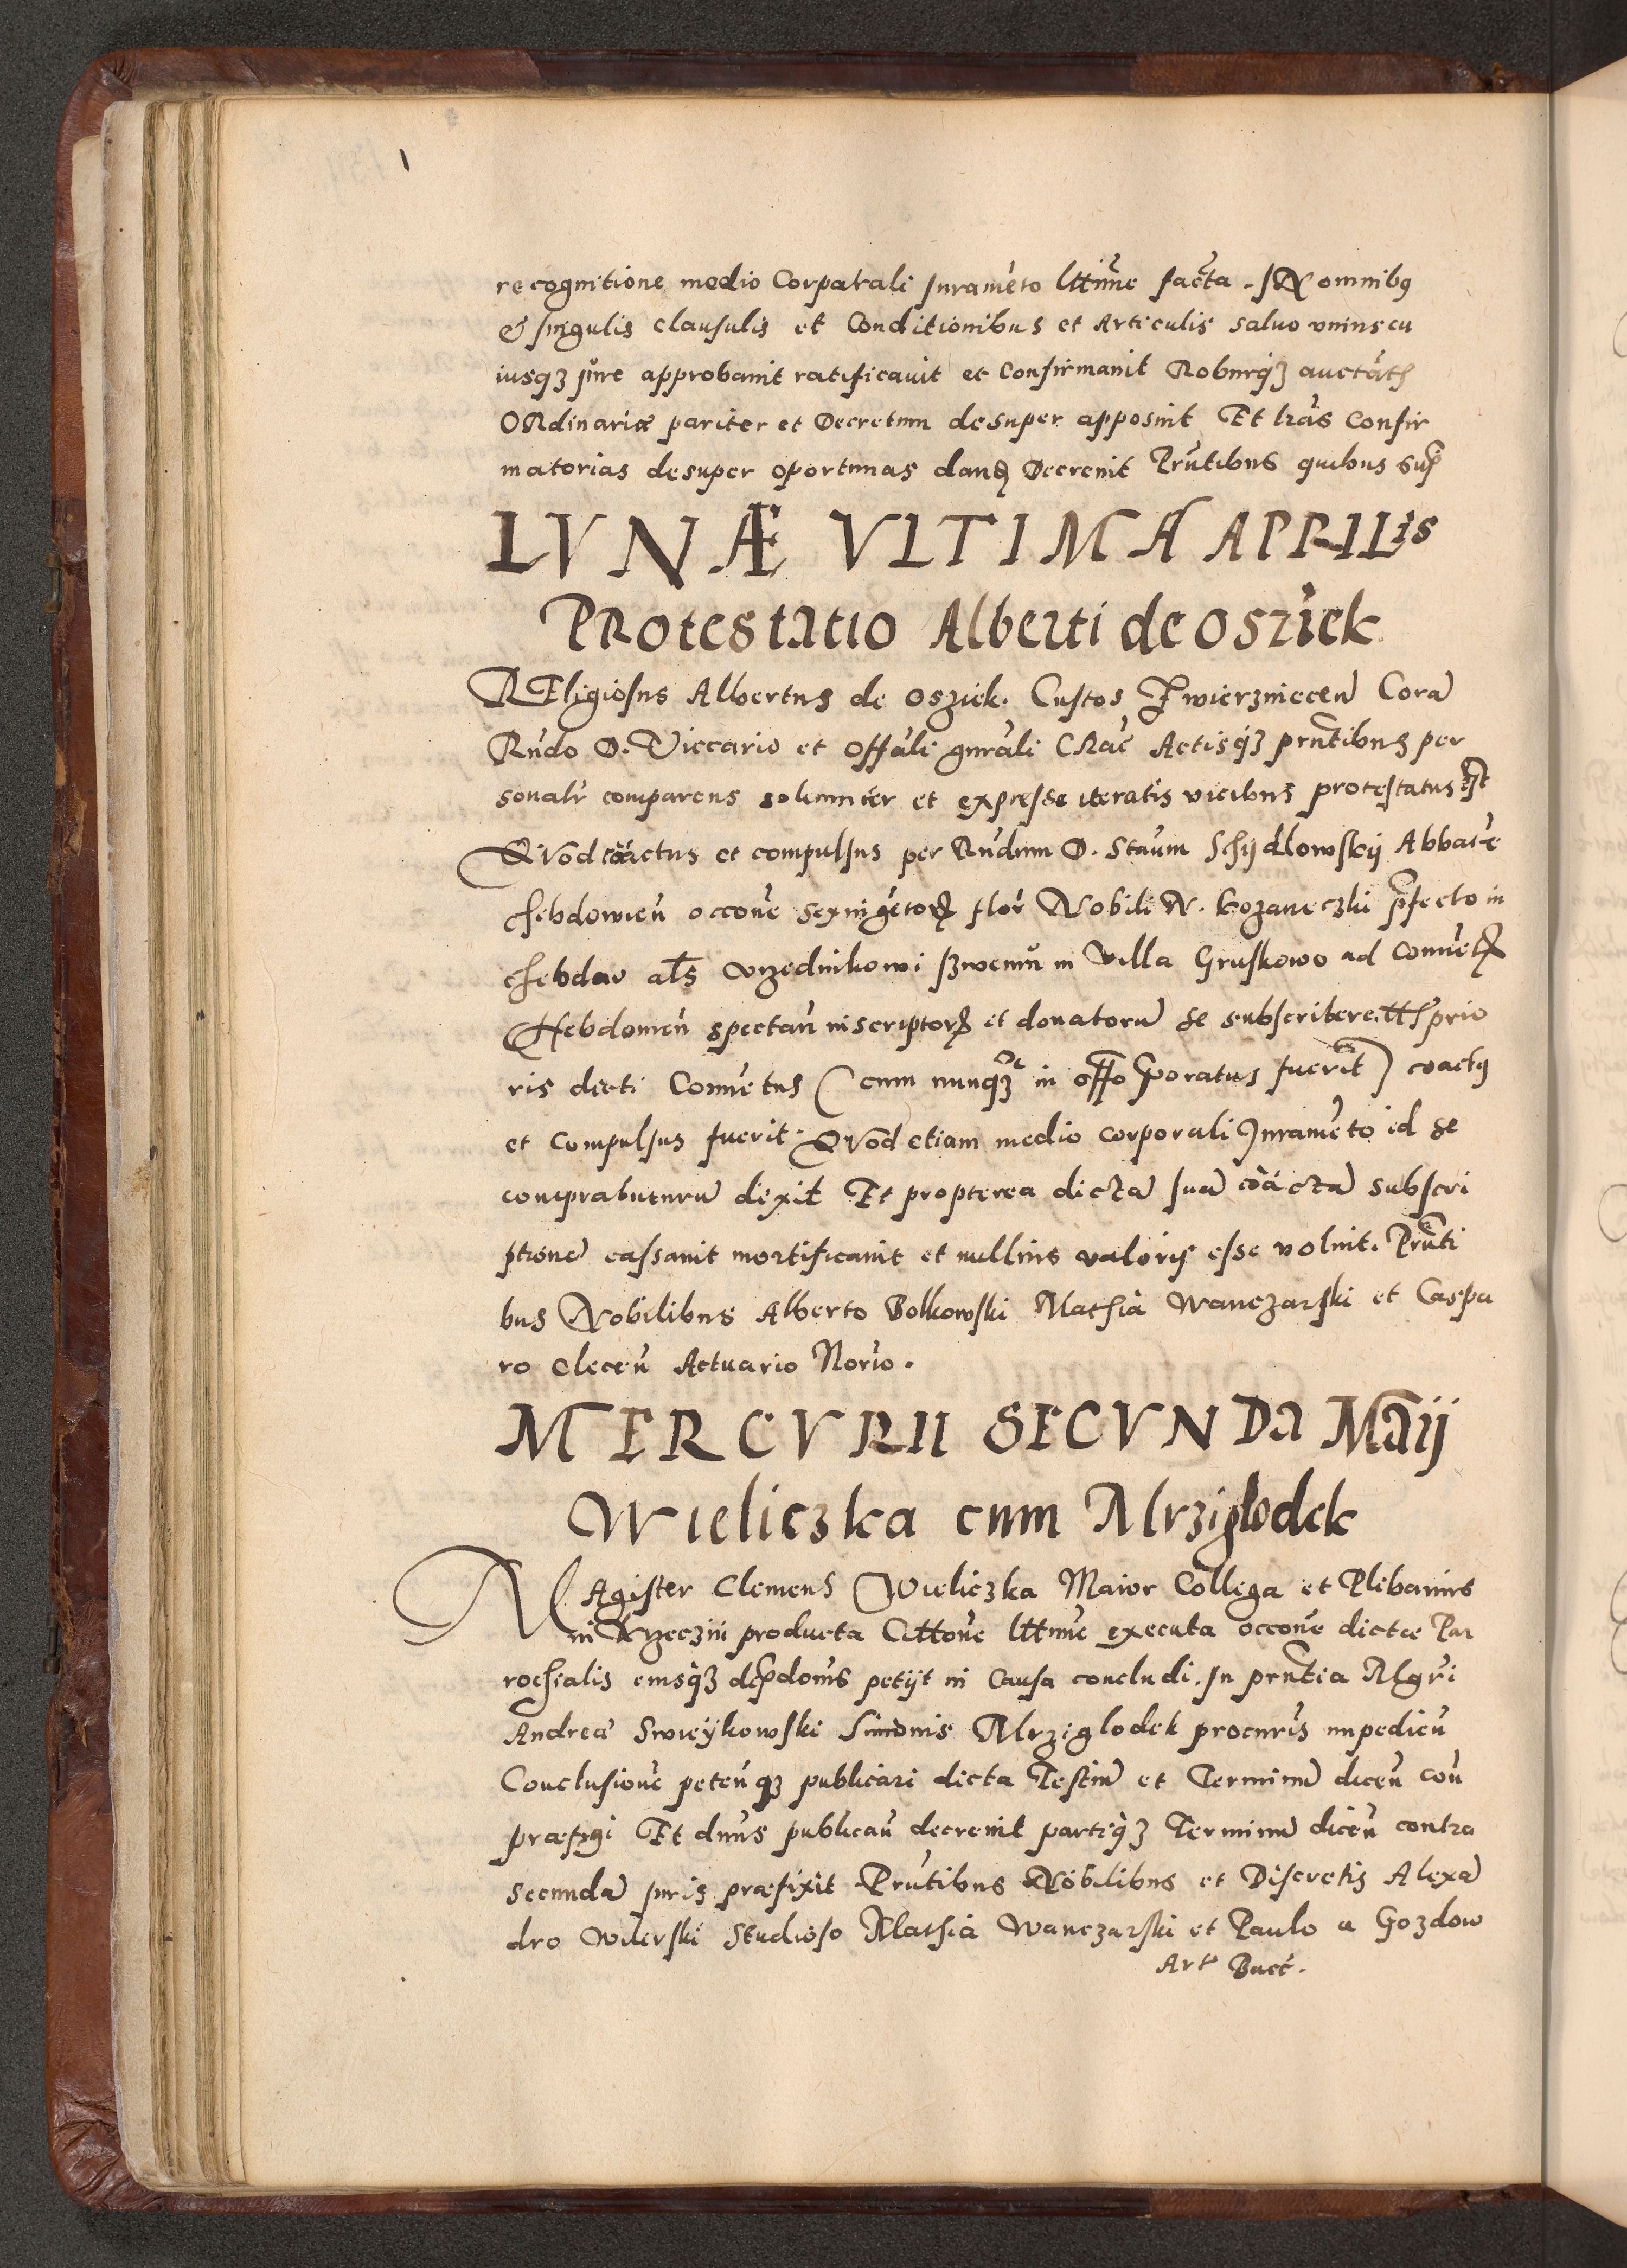 recognitione medio Corporali Iuramēto lttīme facta. IN omnibꝯ
& singulis clausulis et Conditionibus et Articulis saluo vniuscu
iusqȝ jure approbauit ratificauit et Confirmauit Roburqȝ auctātis
ORdinariæ pariter et Decretum desuper apposuit Et lrās Confir
matorias desuper oportunas danꝗ Decreuit Prūtibus quibus sup
LVNÆ VLTIMA APRILis
PROtestatio Alberti de Osziek
REligiosus Albertus de Osziek. Custos Zwierzniecen̄ Corā
Rn̄do D. Viccario et Offāli gn̄rāli Crac̄ Actisqȝ prn̄tibus per
sonalr̄ comparens solemniter et expresse iteratis vicibus protestatus est
QVod coāctus et compulsus per Rn̄dum D. Staūm Schijdlowskij Abbatē
chebdowien̄ occōne sexingētoꝝ flor̄ Nobili N. Kozaneczki p̄fecto in
chebdow al̄s vrzednikowi szwemū in Villa Gruskowo ad Conuētꝫ
Hebdowien̄ spectan̄ inscriptoꝝ et donatorū se subscribere ttͣ prio
ris dicti Conuētus (cum nunqȝ in offo p̄oratus fuerit) coactꝯ
et compulsus fuerit. QVod etiam medio corporali Iuramēto id se
comprabuturū dixit Et propterea dictā suā coāctā subscri
ptionē cassauit mortificauit et nullius valoris esse voluit. Prn̄ti
bus Nobilibus Alberto Bolkowski Mathia Wanczarski et Caspa
ro Clecen̄ Actuario Norio.
MERCVRII SECVNDa Maij
Wieliczka cum Mrziglodek
MAgister Clemens Wieliczka Maior Collega et Plibanus
in Krzeczin producta Cittōne lttīme executa occōne dictæ Par
rochialis eiusqȝ dep̄donis petijt in Causa concludi. In prn̄tia Mgr̄i
Andreæ Swieykowski Simonis Mrziglodek procuris impedien̄
Conclusionē peten̄qȝ publicari dicta Testiū et Terminū dicen̄ con̄
præfigi Et dnūs publicān decreuit partiqȝ Terminū dicen̄ contra
Secundā juris præfixit Prūtibus Nobilibus et Discretis Alexā
dro Wilerski Studioso Mathia Wanczarski et Paulo a Gozdow
Artͥ Bacc̄.